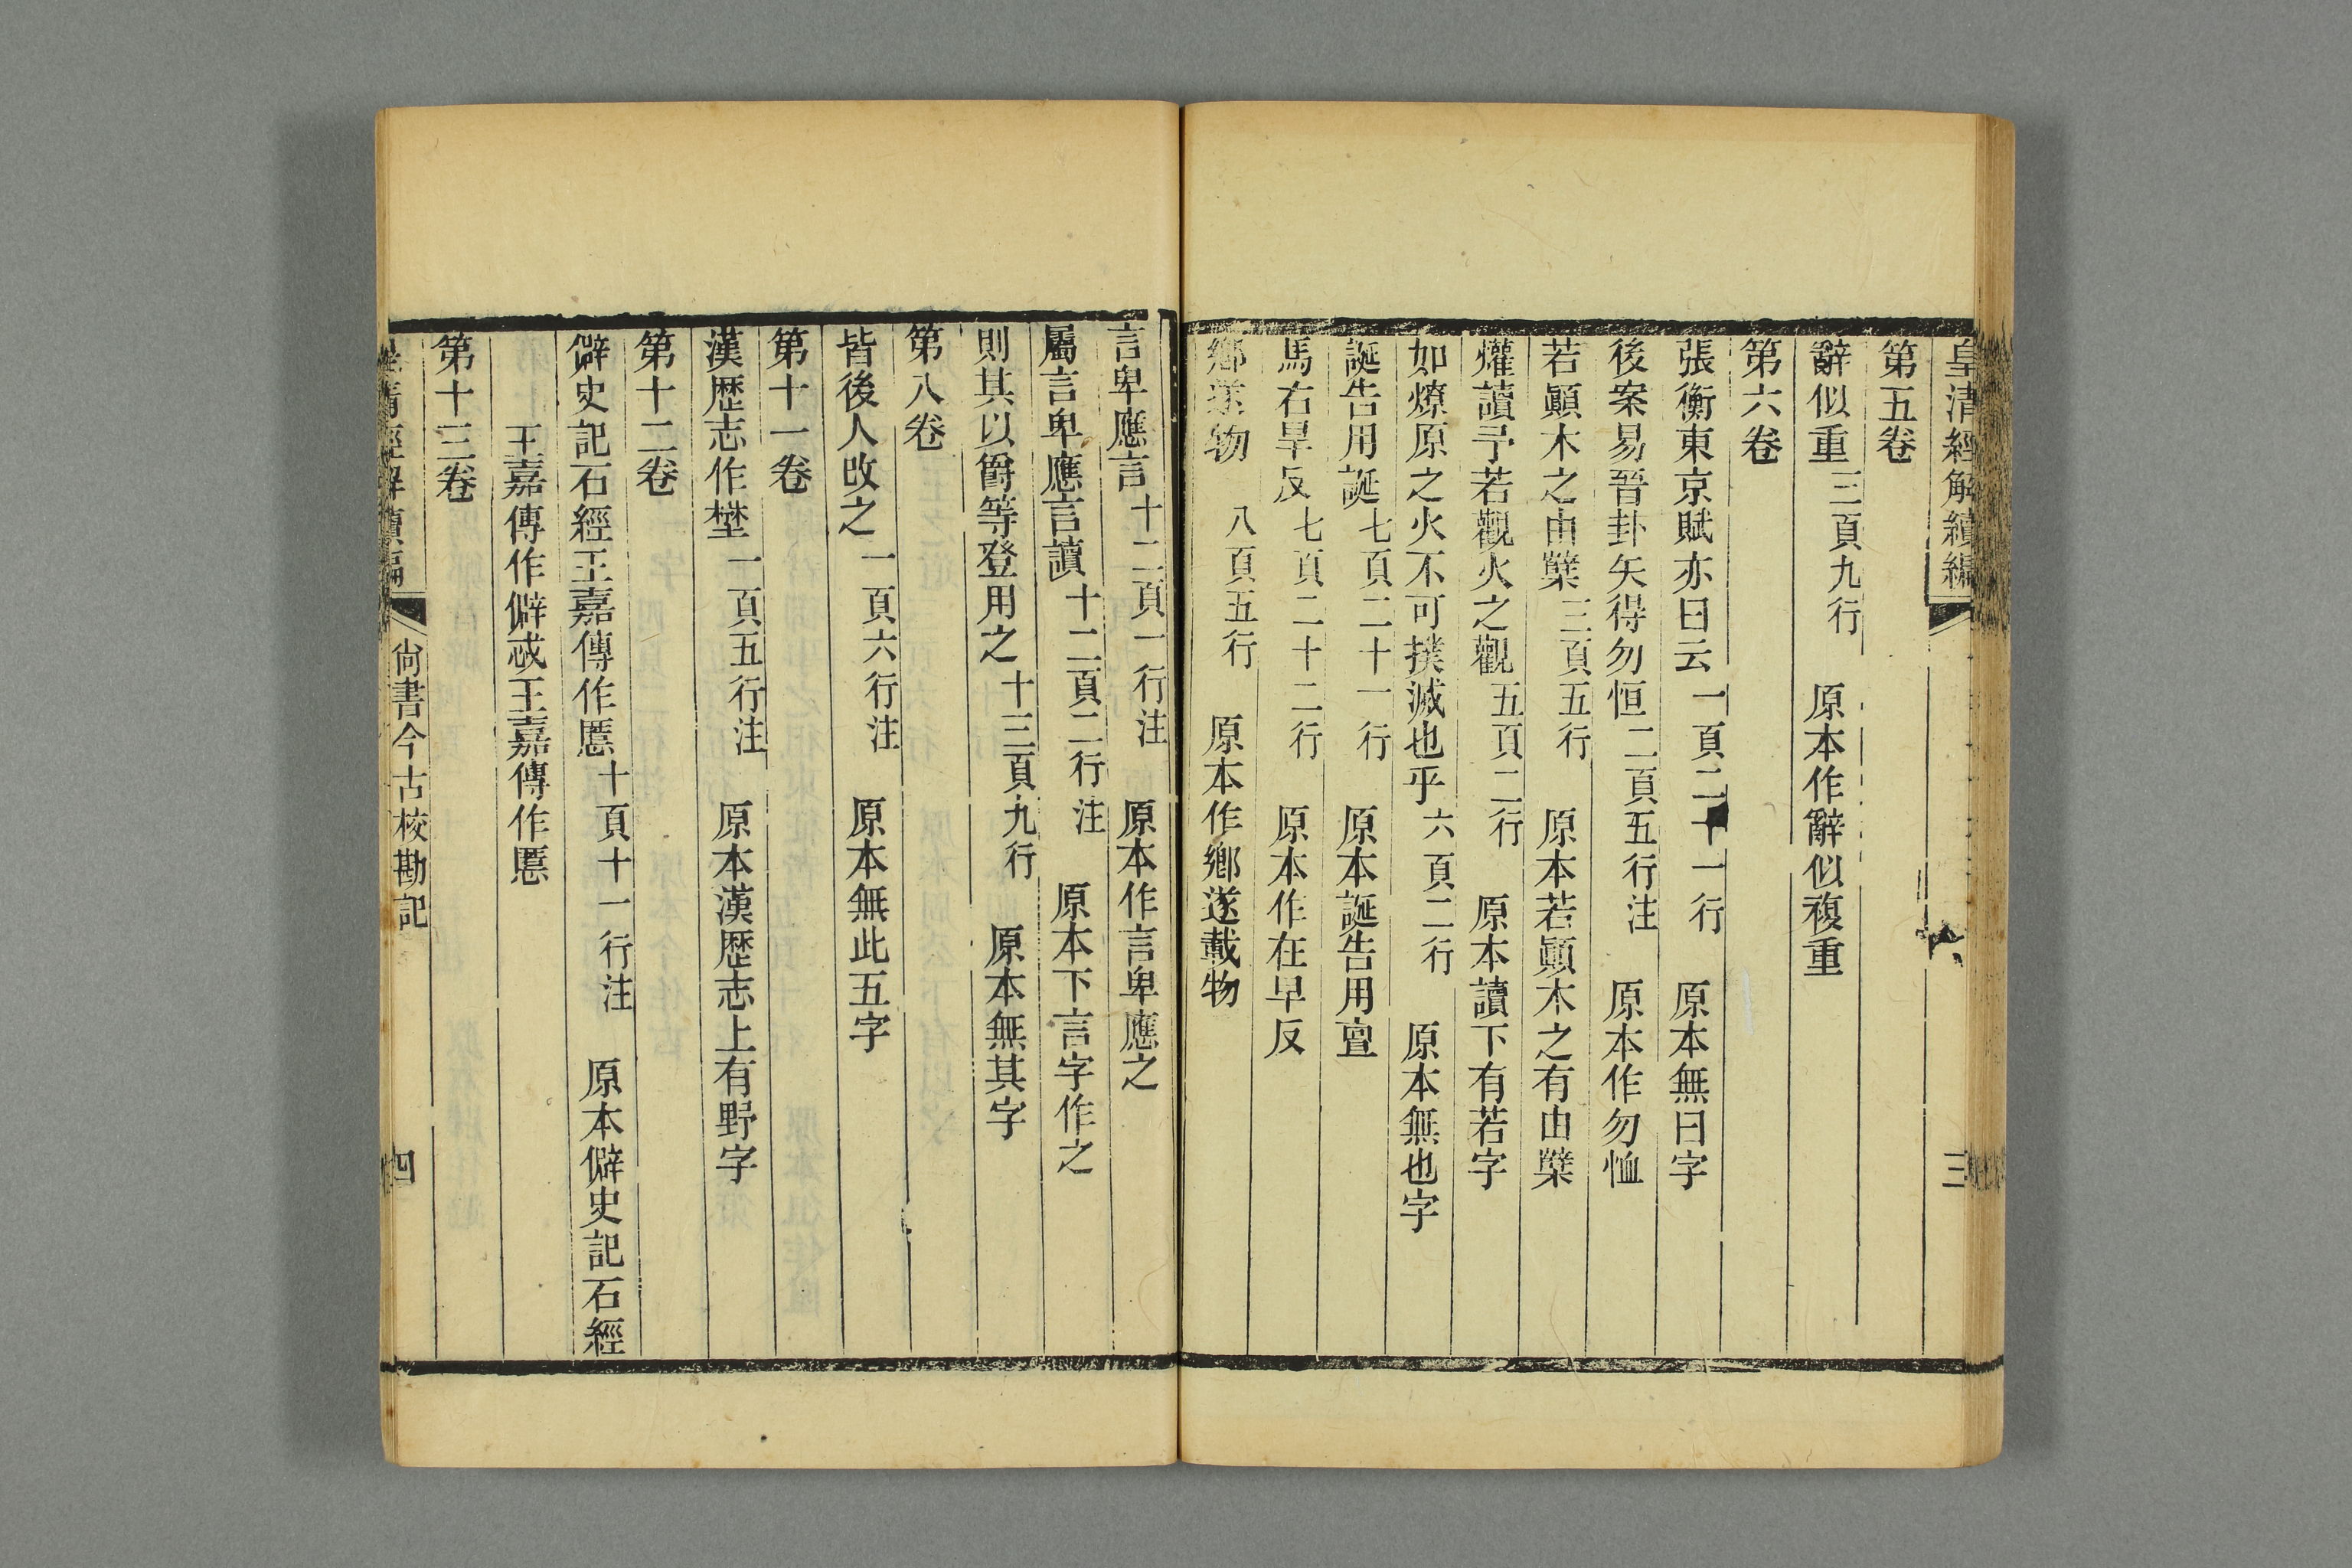 皇清經解續編
三
第五卷
辭似重三頁九行 原本作辭似複重
第六卷
張衡東京賦亦曰云一頁二十一行 原本無曰字
後案易晉卦矢得勿恒二頁五行注 原本作勿恤
若顚木之由櫱三頁五行 原本若顚木之有由櫱
爟讀予若觀火之觀五頁二行 原本讀下有若字
如燎原之火不可撲滅也乎六頁二行 原本無也字
誕告用誕七頁二十一行 原本誕告用亶
馬右旱反七頁二十二行 原本作在早反
鄉遂物八頁五行 原本作鄉遂載物
言卑應言十二頁一行注 原本作言卑應之
屬言卑應言讀十二頁二行注 原本下言字作之
則其以爵等登用之十三頁九行 原本無其字
第八卷
皆後人改之一頁六行注 原本無此五字
第十一卷
漢歷志作埜一頁五行注 原本漢歷志上有野字
第十二卷
僻史記石經王嘉傳作慝十頁十一行注 原本僻史記石經
王嘉傳作僻忒王嘉傳作慝
第十三卷
皇清經解續編
尙書今古校勘記
四